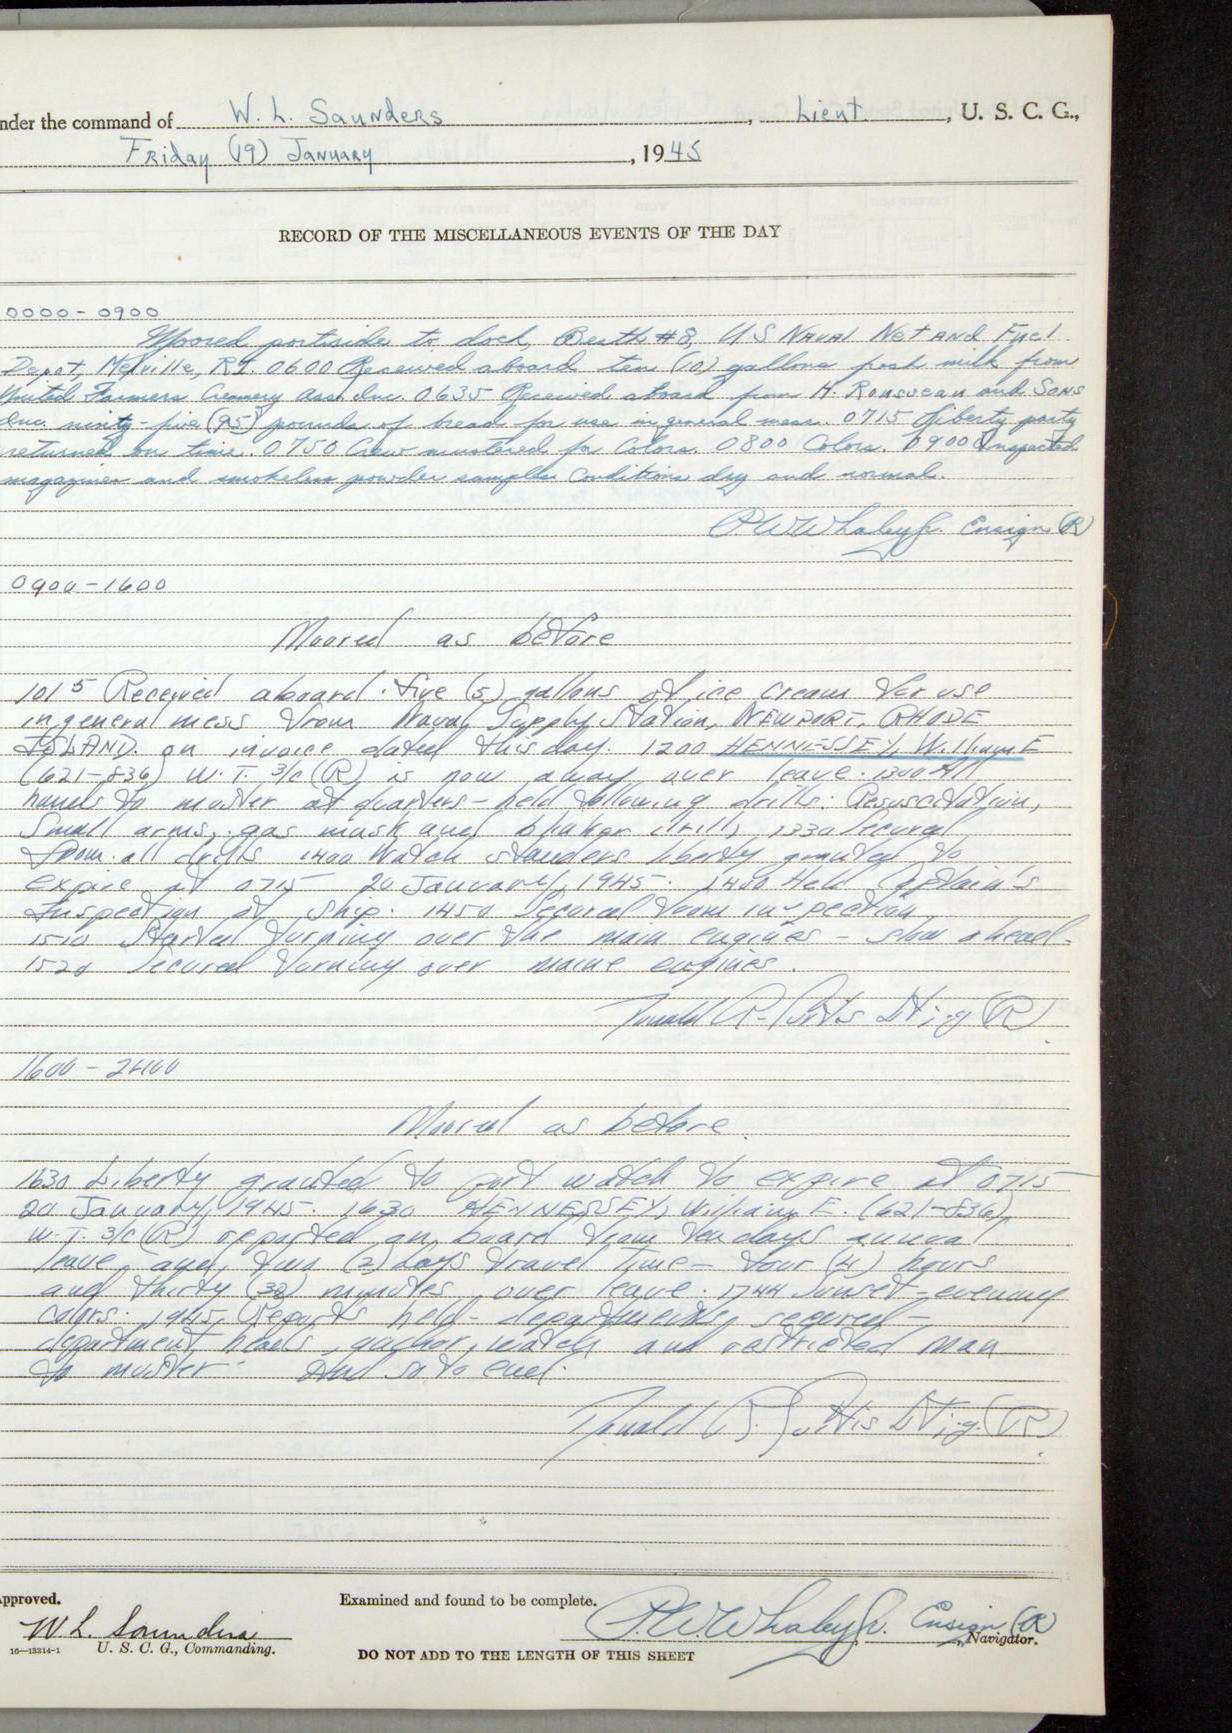 nder the command of W. L. Saunders, Lieut., U. S. C. G.,
Friday (19) January, 1945
RECORD OF THE MISCELLANEOUS EVENTS OF THE DAY
0000-0900
Moored portside to dock, Berth #8, US Naval Net and Fuel
Depot, Melville, R.I. 0600 Received aboard ten (10) gallons fresh milk from
United Farmers Creamery Ass. Inc. 0635 Received aboard from H. Rousseau and Sons
Inc. ninty-five (95) pounds of bread for use in general mess. 0715 Liberty party
returned on time. 0750 Crew mustered for Colors. 0800 Colors. 0900 Inspected
magazines and smokeless powder samples conditions dry and normal.
P.W. Whaley Jr. Ensign (R)
0900-1600
Moored as before
1015 Received aboard five (5) gallons of ice cream for use
in general mess from Naval Supply Station, NEWPORT, RHODE
ISLAND on invoice dated this day. 1200 HENNESSEY, William E
(621-836) W.T. 3/c (R) is now away over leave. 1300 All
hands to muster at quarters - held following drills: Resuscitation,
Small arms, gas mask and drill, 1330 Secured
from all drills 1400 Watch standers liberty granted to
expire at 0715 20 January, 1945. 1400 Held Captain's
Inspection of ship. 1450 Secured from inspection
1510 Started turning over the main engines - slow ahead.
1520 Secured turning over maine engines.
Donald R. Lt j.g (R)
1600-2400
Moored as before.
1630 Liberty granted to port watch to expire at 0715
20 January, 1945. 1630 HENNESSEY, William E. (621-836),
W.T. 3/c (R) reported on board from ten days annual
leave and two (2) days travel time - four (4) hours
and thirty (30) minutes over leave. 1744 Sunset - evening
colors. 1945 Reports held - departments secured -
department heads, anchor watch and restricted man
to muster. And so to end.
Donald R. Lt j.g. (R)
Approved.
W. L. Saunders
U. S. C. G., Commanding.
16—13314-1
Examined and found to be complete.
P.W. Whaley Jr. Ensign (R), Navigator.
DO NOT ADD TO THE LENGTH OF THIS SHEET